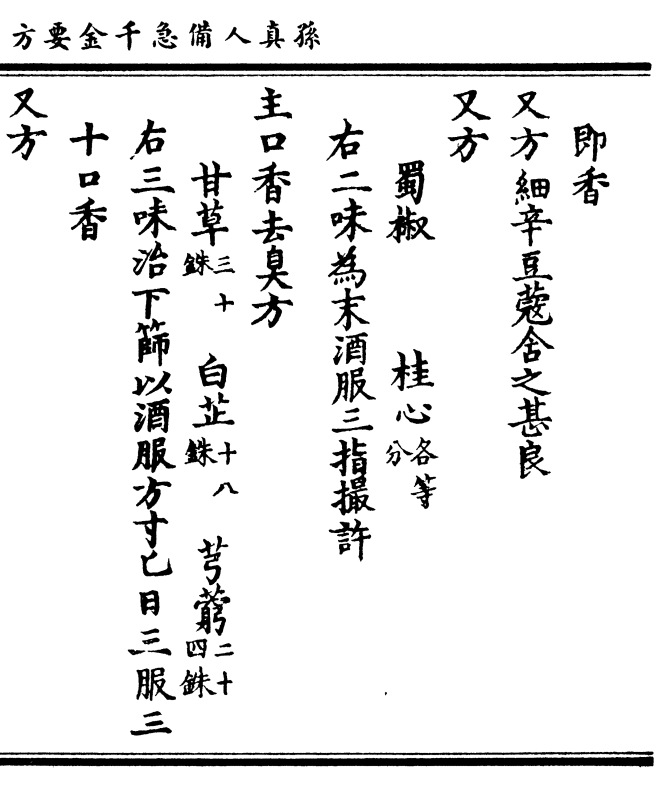 孫真人備急千金要方
即香
又方細辛豆蔻舍之甚良
又方
蜀椒 桂心各等分
右二味為末酒服三指撮許
主口香去臭方
甘草三十銖 白芷十八銖 芎藭二十四銖
右三味治下篩以酒服方寸匕日三服三
十口香
又方